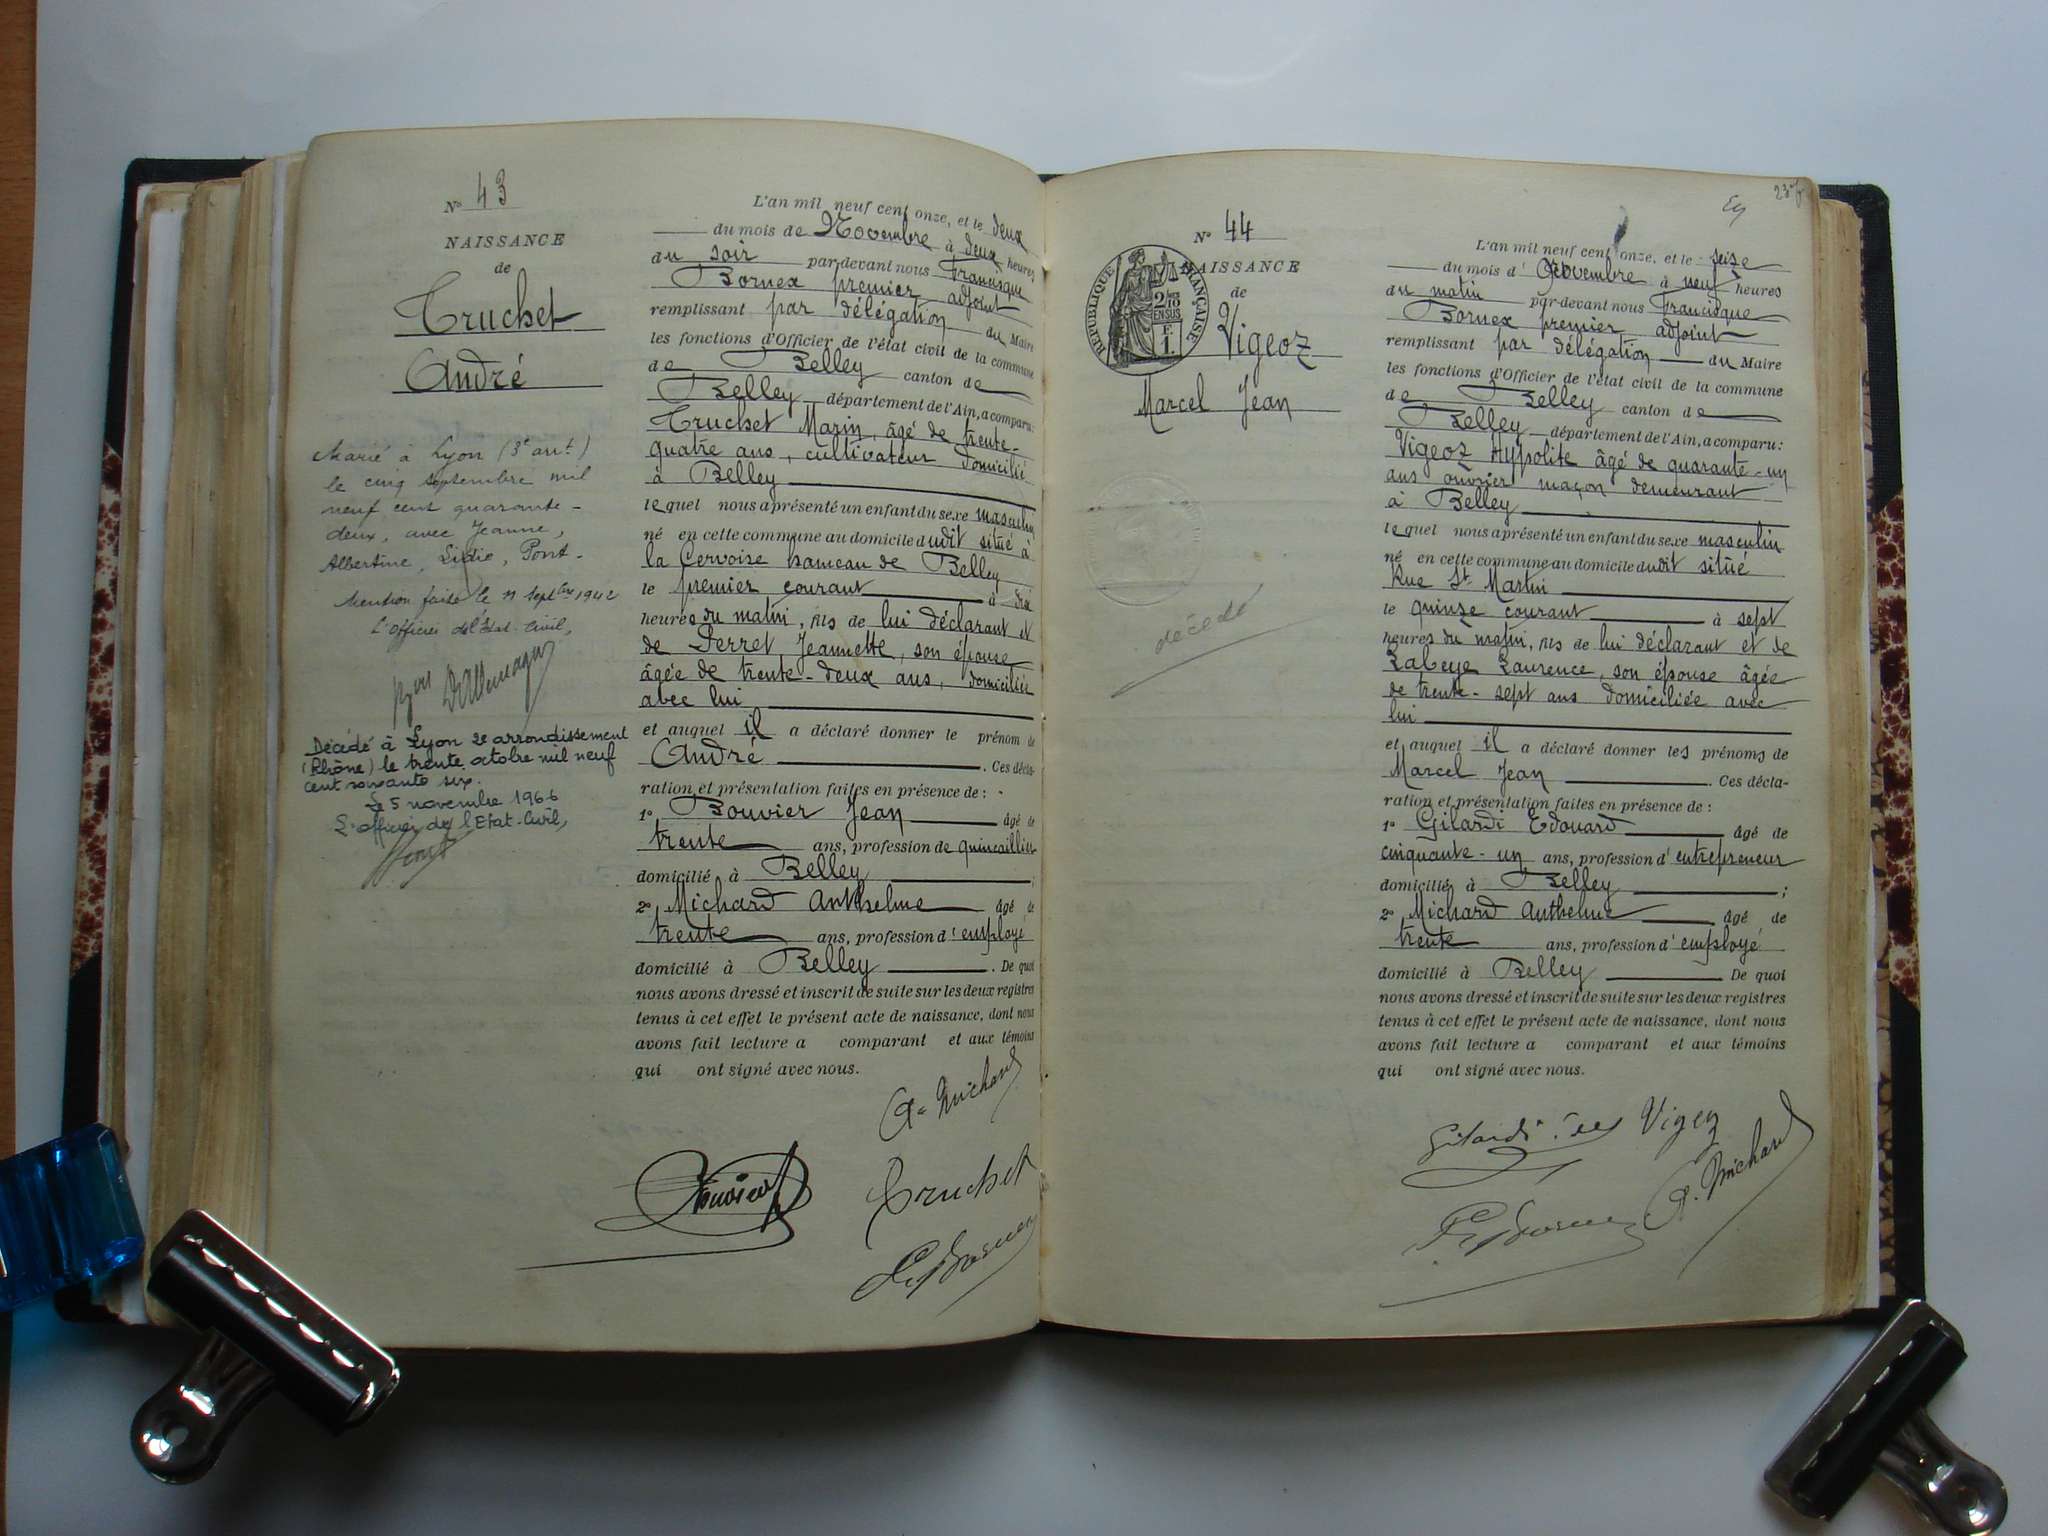 Nº 43
NAISSANCE
de
Truchet
André
Marié à Lyon (3e arrt)
le cinq septembre mil
neuf cent quarante-
deux, avec Jeanne,
Albertine, Lidie, Pont.
Mention faite le 11 Septbre 1942
L'Officier de l'État-Civil,
Décédé à Lyon 2e arrondissement
(Rhône) le trente octobre mil neuf
cent soixante six.
Le 5 novembre 1966
L'officier de l'Etat-Civil,
L'an mil neuf cent onze, et le deux
du mois de Novembre à deux heures
du soir par-devant nous Francisque
Bornex premier adjoint
remplissant par délégation du Maire
les fonctions d'Officier de l'état civil de la commune
de Belley canton de
Belley département de l'Ain, a comparu:
Truchet Marin, âgé de trente-
quatre ans, cultivateur domicilié
à Belley
lequel nous a présenté un enfant du sexe masculin
né en cette commune au domicile dudit situé à
la Cervoise hameau de Belley
le premier courant à dix
heures du matin, fils de lui déclarant et
de Perret Jeannette, son épouse
âgée de trente-deux ans, domiciliée
avec lui
et auquel il a déclaré donner le prénom de
André . Ces décla-
ration et présentation faites en présence de :
1º Bouvier Jean âgé de
trente ans, profession de quincaillier
domicilié à Belley ;
2º Michard Anthelme âgé de
trente ans, profession d'employé
domicilié à Belley . De quoi
nous avons dressé et inscrit de suite sur les deux registres
tenus à cet effet le présent acte de naissance, dont nous
avons fait lecture a comparant et aux témoins
qui ont signé avec nous.
A. Michard
Bouvier
Truchet
F. Bornex
23
Nº 44
RÉPUBLIQUE FRANÇAISE
2/10
EN SUS
NAISSANCE
de
Vigeoz
Marcel Jean
décédé
L'an mil neuf cent onze, et le seize
du mois d' Novembre à neuf heures
du matin par-devant nous Francisque
Bornex premier adjoint
remplissant par délégation du Maire
les fonctions d'Officier de l'état civil de la commune
de Belley canton de
Belley département de l'Ain, a comparu:
Vigeoz Hyppolite âgé de quarante-un
ans ouvrier maçon demeurant
à Belley
lequel nous a présenté un enfant du sexe masculin
né en cette commune au domicile dudit situé
Rue St Martin
le quinze courant à sept
heures du matin, fils de lui déclarant et de
Labeye Laurence, son épouse âgée
de trente-sept ans domiciliée avec
lui
et auquel il a déclaré donner les prénoms de
Marcel Jean . Ces décla-
ration et présentation faites en présence de :
1º Gilardi Edouard âgé de
cinquante-un ans, profession d'entrepreneur
domicilié à Belley ;
2º Michard Anthelme âgé de
trente ans, profession d'employé
domicilié à Belley De quoi
nous avons dressé et inscrit de suite sur les deux registres
tenus à cet effet le présent acte de naissance, dont nous
avons fait lecture a comparant et aux témoins
qui ont signé avec nous.
Gilardi Vigez
A. Michard
F. Bornex